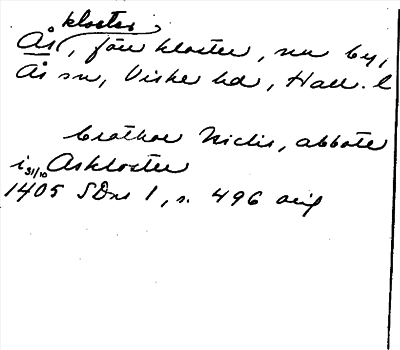 kloster
Ås, förr kloster, nu by,
Ås sn, Viske hd, Hall. l
brothoe Niclis, abbote
i Askloster
31/10
1405 SDns 1, s. 496 orig